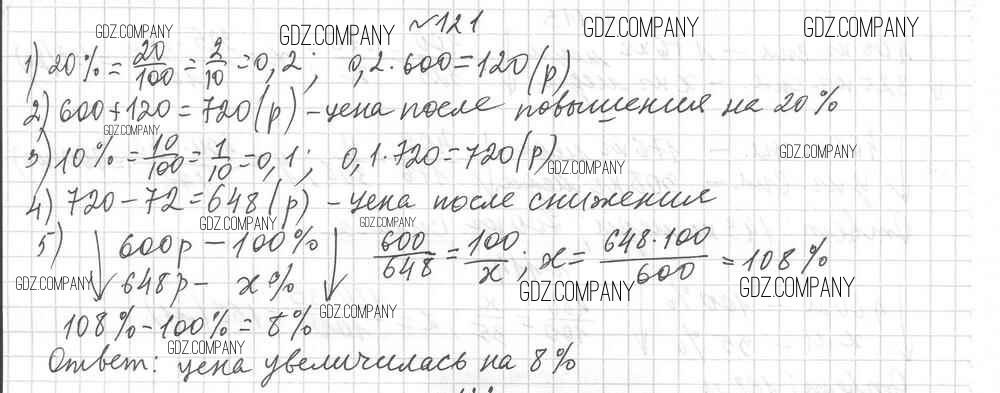 GDZ.COMPANY GDZ.COMPANY №121 GDZ.COMPANY GDZ.COMPANY
1) 20% = 20/100 = 2/10 = 0,2; 0,2·600=120(р)
2) 600+120=720(р) – цена после повышения на 20%
GDZ.COMPANY
3) 10% = 10/100 = 1/10 = 0,1; 0,1·720=720(р) GDZ.COMPANY GDZ.COMPANY
4) 720-72=648(р) – цена после снижения
GDZ.COMPANY GDZ.COMPANY
5) ↓ 600р – 100% ↓ 600/648 = 100/x; x = 648·100/600 = 108%
GDZ.COMPANY 648р – x% GDZ.COMPANY GDZ.COMPANY
108%-100%=8% GDZ.COMPANY
GDZ.COMPANY
Ответ: цена увеличилась на 8%